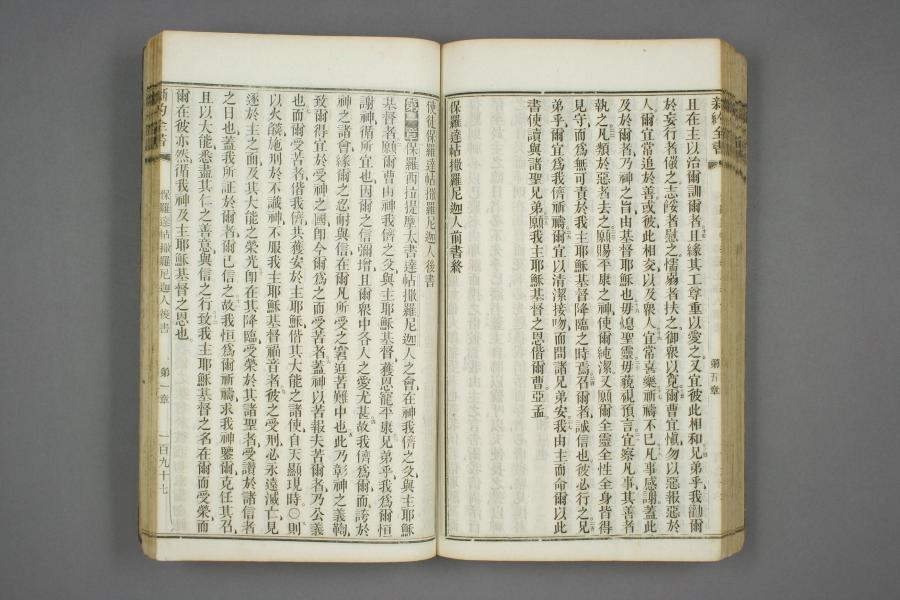 新約全書
第五章
且在主以治爾訓爾者且緣其工尊重以愛之又宜彼此相和兄弟乎我勸爾
於妄行者儆之志餒者慰之懦弱者扶之御眾以寬爾曹宜愼勿以惡報惡於
人爾宜常追於善或彼此相交以及眾人宜常喜樂祈禱不已凡事感謝蓋此
及於爾者乃神之旨由基督耶穌也毋熄聖靈毋藐視預言宜察凡事其善者
執之凡類於惡者去之願賜平康之神使爾純潔又願爾全靈全性全身皆得
見守而爲無可責於我主耶穌基督降臨之時焉召爾者誠信也彼必行之兄
弟乎爾宜爲我儕祈禱爾宜以清潔接吻而問諸兄弟安我由主而命爾以此
書使讀與諸聖兄弟願我主耶穌基督之恩偕爾曹亞孟
保羅達帖撒羅尼迦人前書終
使徒保羅達帖撒羅尼迦人後書
第一章保羅西拉提摩太書達帖撒羅尼迦人之會在神我儕之父與主耶穌
基督者願爾曹由神我儕之父與主耶穌基督獲恩寵平康兄弟乎我爲爾恒
謝神循所宜也因爾之信彌增且爾眾中各人之愛尤甚故我儕爲爾而誇於
神之諸會緣爾之忍耐與信在爾凡所受之窘迫苦難中也此乃彰神之義鞫
致爾得宜於受神之國卽今爾爲之而受苦者蓋神以苦報夫苦爾者乃公義
也而爾受苦者偕我儕共獲安於主耶穌偕其大能之諸使自天顯現時〇則
以火燄施刑於不識神不服我主耶穌基督福音者彼之受刑必永遠滅亡見
逐於主之面及其大能之榮光卽在其降臨受榮於其諸聖者受讚於諸信者
之日也蓋我所証於爾者爾已信之故我恒爲爾祈禱求我神鑒爾克任其召
且以大能悉盡其仁之善意與信之行致我主耶穌基督之名在爾而受榮而
爾在彼亦然循我神及主耶穌基督之恩也
新約全書
保羅達帖撒羅尼迦人後書
第一章
一百九十七